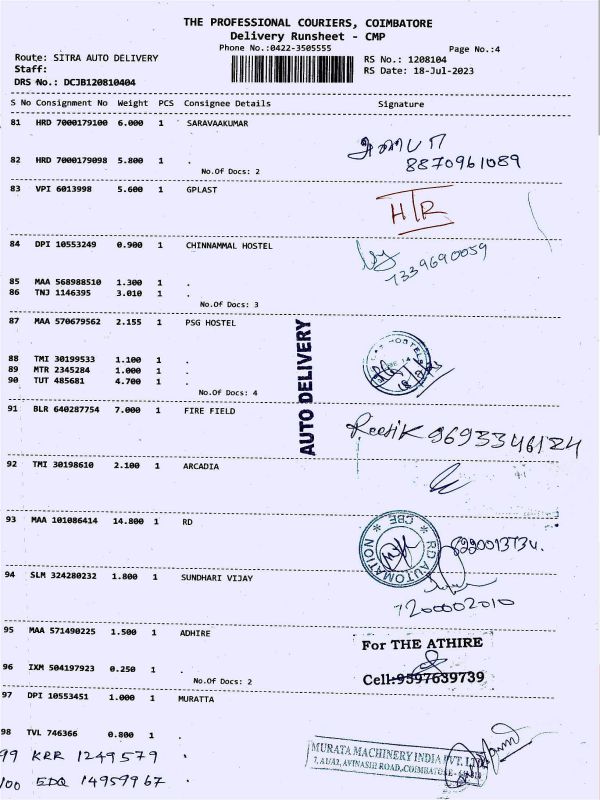 THE PROFESSIONAL COURIERS, COIMBATORE
Delivery Runsheet - CMP
Phone No.:0422-3505555 Page No.:4
Route: SITRA AUTO DELIVERY RS No.: 1208104
Staff: RS Date: 18-Jul-2023
DRS No.: DCJB120810404
S No Consignment No Weight PCS Consignee Details Signature
81 HRD 7000179100 6.000 1 SARAVAAKUMAR
82 HRD 7000179098 5.800 1 .
8870961089
No.Of Docs: 2
83 VPI 6013998 5.600 1 GPLAST
HTR
84 DPI 10553249 0.900 1 CHINNAMMAL HOSTEL
7339690059
85 MAA 568988510 1.300 1 .
86 TNJ 1146395 3.010 1 .
No.Of Docs: 3
87 MAA 570679562 2.155 1 PSG HOSTEL
AUTO DELIVERY
88 TMI 30199533 1.100 1 .
89 MTR 2345284 1.000 1 .
90 TUT 485681 4.700 1 .
No.Of Docs: 4
91 BLR 640287754 7.000 1 FIRE FIELD
9693346124
92 TMI 30198610 2.100 1 ARCADIA
93 MAA 101086414 14.800 1 RD
RD AUTOMATION
CBE
94 SLM 324280232 1.800 1 SUNDHARI VIJAY
7200002010
95 MAA 571490225 1.500 1 ADHIRE
For THE ATHIRE
96 IXM 504197923 0.250 1 .
No.Of Docs: 2
Cell:9597639739
97 DPI 10553451 1.000 1 MURATTA
98 TVL 746366 0.800 1 .
99 KRR 1249579
100 EDQ 14959967
MURATA MACHINERY INDIA PVT. LTD
7, AVINASHI ROAD, COIMBATORE